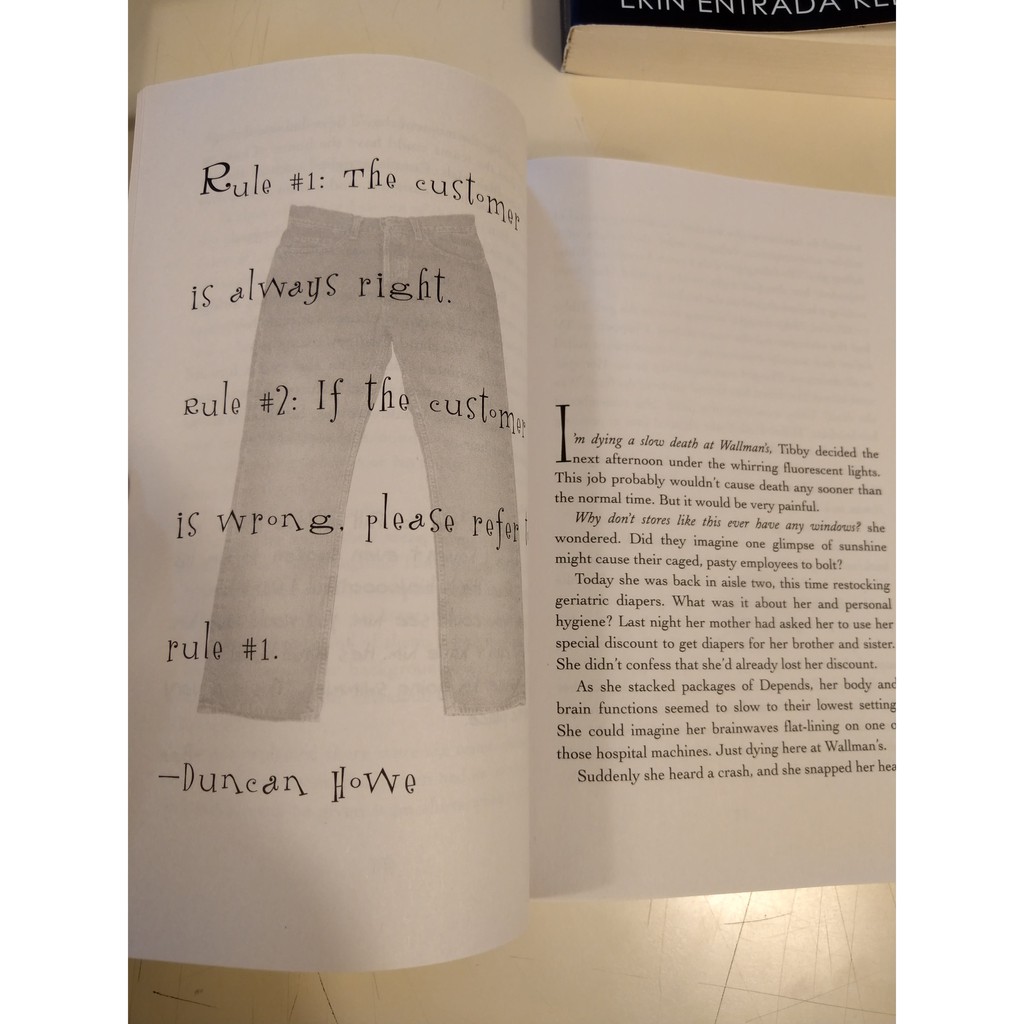 ERIN ENTRADA
Rule #1: The customer
is always right.
Rule #2: If the customer
is wrong, please refer
rule #1.
—Duncan Howe
I'm dying a slow death at Wallman's, Tibby decided the
next afternoon under the whirring fluorescent lights.
This job probably wouldn't cause death any sooner than
the normal time. But it would be very painful.
Why don't stores like this ever have any windows? she
wondered. Did they imagine one glimpse of sunshine
might cause their caged, pasty employees to bolt?
Today she was back in aisle two, this time restocking
geriatric diapers. What was it about her and personal
hygiene? Last night her mother had asked her to use her
special discount to get diapers for her brother and sister.
She didn't confess that she'd already lost her discount.
As she stacked packages of Depends, her body and
brain functions seemed to slow to their lowest setting
She could imagine her brainwaves flat-lining on one
those hospital machines. Just dying here at Wallman's.
Suddenly she heard a crash, and she snapped her